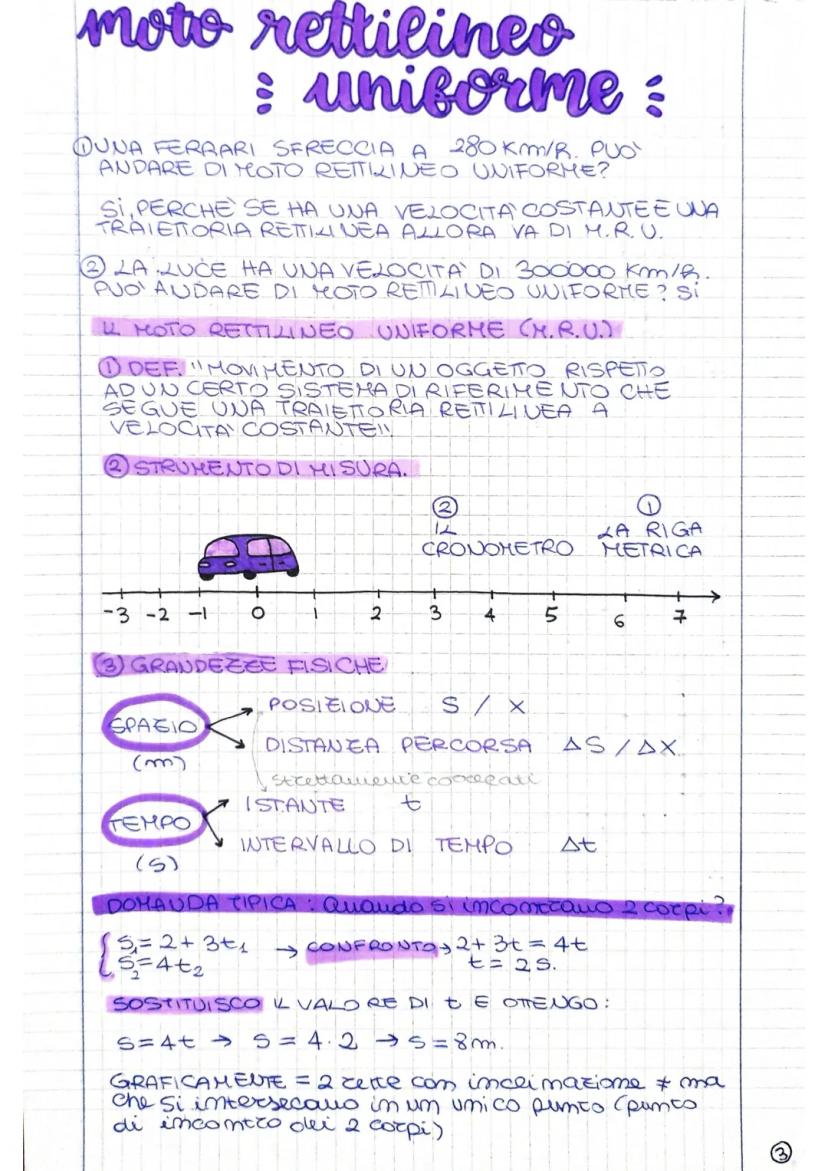 moto rettilineo
uniforme
① UNA FERRARI SFRECCIA A 280 Km/h. PUO'
ANDARE DI MOTO RETTILINEO UNIFORME?
SI, PERCHE' SE HA UNA VELOCITA' COSTANTE E UNA
TRAIETTORIA RETTILINEA ALLORA VA DI M.R.U.
② LA LUCE HA UNA VELOCITA' DI 300000 Km/h.
PUO' ANDARE DI MOTO RETTILINEO UNIFORME? SI
IL MOTO RETTILINEO UNIFORME (M.R.U.)
① DEF: "MOVIMENTO DI UN OGGETTO RISPETTO
AD UN CERTO SISTEMA DI RIFERIMENTO CHE
SEGUE UNA TRAIETTORIA RETTILINEA A
VELOCITA' COSTANTE"
② STRUMENTO DI MISURA.
② ①
IL LA RIGA
CRONOMETRO METRICA
-3 -2 -1 0 1 2 3 4 5 6 7
③ GRANDEZZE FISICHE
POSIZIONE S / X
SPAZIO
DISTANZA PERCORSA ΔS / ΔX
(m)
strettamente correlati
ISTANTE t
TEMPO
INTERVALLO DI TEMPO Δt
(S)
DOMANDA TIPICA: Quando si incontrano 2 corpi?
S₁= 2+ 3t₁ → CONFRONTO → 2+ 3t = 4t
S₂=4t₂ t= 2s.
SOSTITUISCO IL VALORE DI t E OTTENGO:
S=4t → S = 4·2 → S=8m.
GRAFICAMENTE = 2 rette con inclinazione ≠ ma
che si intersecano in un unico punto (punto
di incontro dei 2 corpi)
③